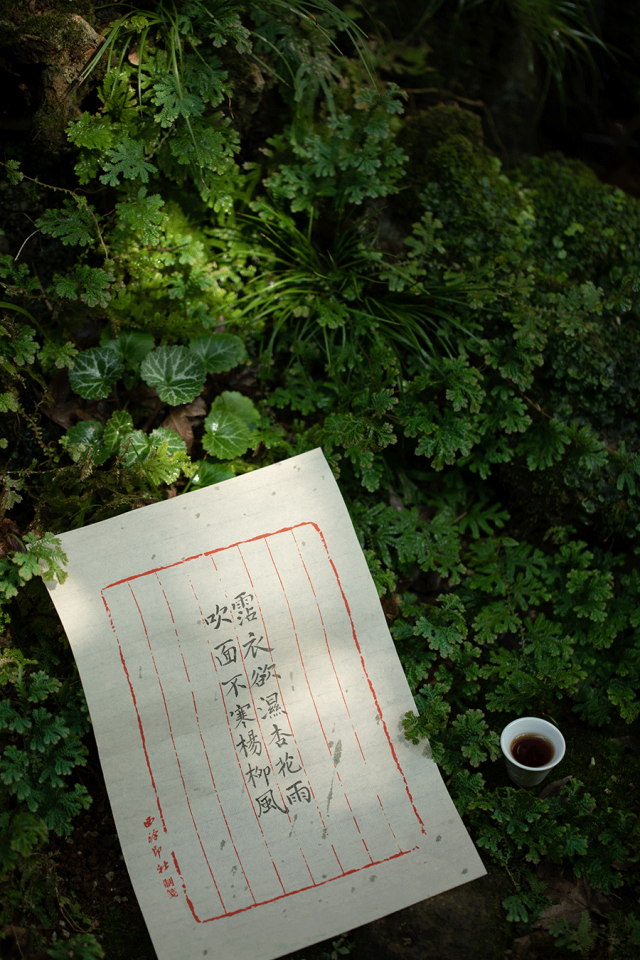 霑衣欲濕杏花雨
吹面不寒楊柳風
西泠印社制笺